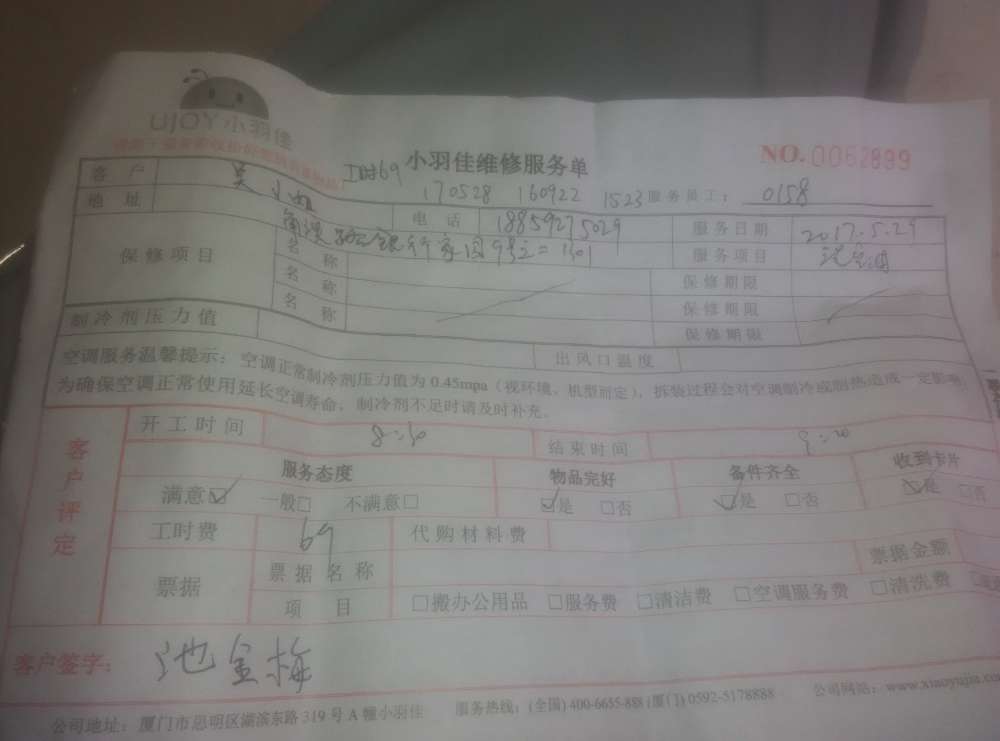 UJOY小羽佳
小羽佳维修服务单
NO.0062899
工时69
170528 160922 1523 服务员工: 0158
客户 吴小姐
电话 18859275029 服务日期 2017.5.29
地址 银行家园9号之二1301
服务项目 洗空调
保修项目
名称 保修期限
名称 保修期限
名称 保修期限
制冷剂压力值 出风口温度
空调服务温馨提示:空调正常制冷剂压力值为0.45mpa(视环境、机型而定),拆装过程会对空调制冷或制热造成一定影响,
为确保空调正常使用延长空调寿命,制冷剂不足时请及时补充。
客户评定
开工时间 8:30 结束时间 9:20
服务态度 物品完好 备件齐全 收到卡片
满意☑ 一般□ 不满意□ ☑是 □否 ☑是 □否 ☑是 □否
工时费 69 代购材料费
票据 票据名称 票据金额
项目 □搬办公用品 □服务费 □清洁费 □空调服务费 □清洗费
客户签字: 池金梅
公司地址:厦门市思明区湖滨东路319号A幢小羽佳 服务热线:(全国)400-6655-888(厦门)0592-5178888 公司网站:www.xiaoyujia.co